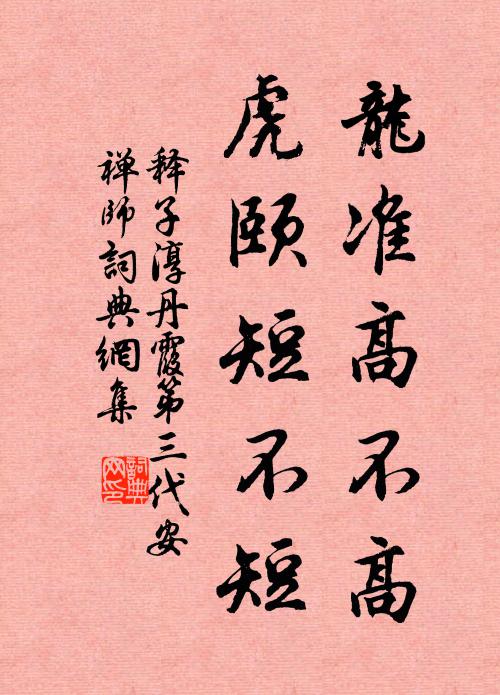 龍准高不高
虎頤短不短
释子淳丹霞第三代安
禅師詞典網集
詞典
网印